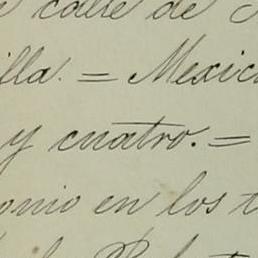 calle de
illa. = Mexic
y cuatro. =
onio en los t